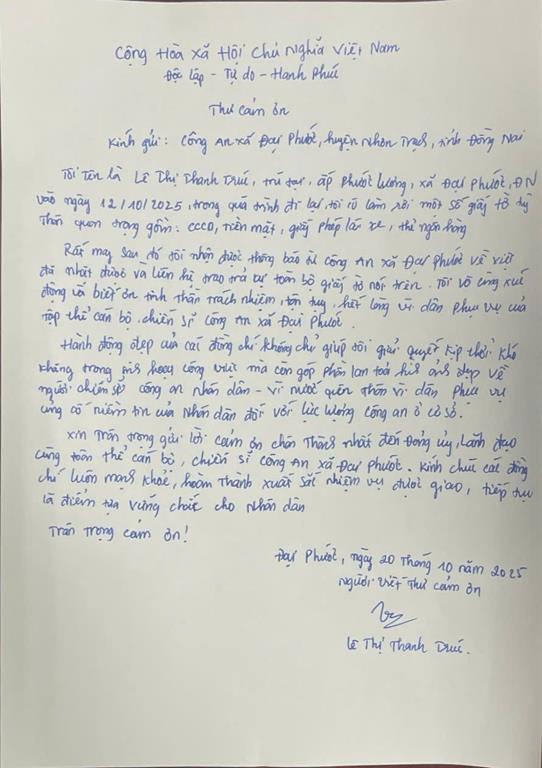 Cộng Hòa Xã Hội Chủ Nghĩa Việt Nam
Độc lập - Tự do - Hạnh Phúc
Thư cảm ơn
Kính gửi: Công An xã Đại Phước, huyện Nhơn Trạch, tỉnh Đồng Nai
Tôi tên là Lê Thị Thanh Trúc, trú tại, ấp Phước Lương, xã Đại Phước, ĐN
vào ngày 12/10/2025, trong quá trình đi lại, tôi có làm rơi một số giấy tờ tùy
thân quan trọng gồm: CCCD, tiền mặt, giấy phép lái xe, thẻ ngân hàng
Rất may sau đó tôi nhận được thông báo từ công An xã Đại Phước về việc
đã nhặt được và liên hệ trao trả lại toàn bộ giấy tờ nói trên. Tôi vô cùng xúc
động và biết ơn tinh thần trách nhiệm, tận tụy, hết lòng vì dân phục vụ của
tập thể cán bộ, chiến sĩ công An xã Đại Phước.
Hành động đẹp của các đồng chí không chỉ giúp tôi giải quyết kịp thời khó
khăng trong sinh hoạt công việc mà còn góp phần lan toả hình ảnh đẹp về
người chiến sĩ công an nhân dân - vì nước quên thân vì dân phục vụ
củng cố niềm tin của Nhân dân đối với lực lượng công an ở cơ sở.
Xin trân trọng gửi lời cảm ơn chân thành nhất đến Đảng ủy, Lãnh đạo
cùng toàn thể cán bộ, chiến sĩ công An xã Đại Phước. Kính chúc các đồng
chí luôn mạnh khoẻ, hoàn thành xuất sắc nhiệm vụ được giao, tiếp tục
là điểm tựa vững chắc cho nhân dân
Trân trọng cảm ơn!
Đại Phước, ngày 20 tháng 10 năm 2025
Người viết thư cảm ơn
Lê Thị Thanh Trúc.